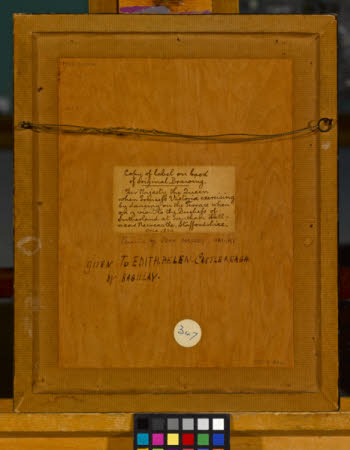 Copy of label on back
of original Drawing.
Her Majesty the Queen
when Princess Victoria exercising
by dancing on the Terrace when
on a visit to the
Sutherland at Trentham Hall
near Newcastle, Staffordshire
GIVEN TO EDITH HELEN CASTLEREAGH
BY
347